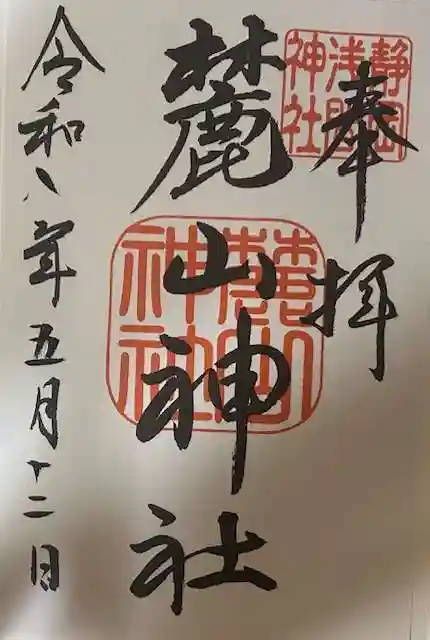 奉拝
静岡
浅間
神社
麓山神社
麓山
神社
令和八年五月十二日